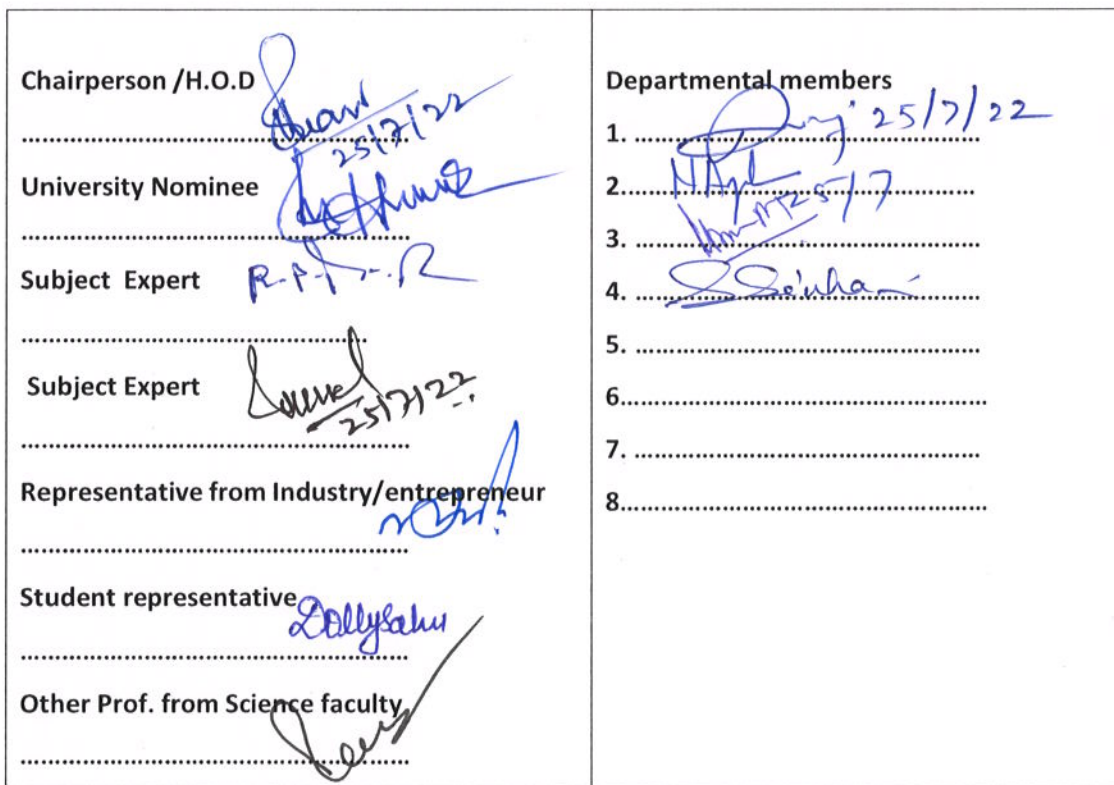 Chairperson /H.O.D
25/7/22
University Nominee
Subject Expert
Subject Expert
25/7/22
Representative from Industry/entrepreneur
Student representative
Dollysahu
Other Prof. from Science faculty
Departmental members
1. 25/7/22
2.
25/7
3.
4.
5.
6.
7.
8.